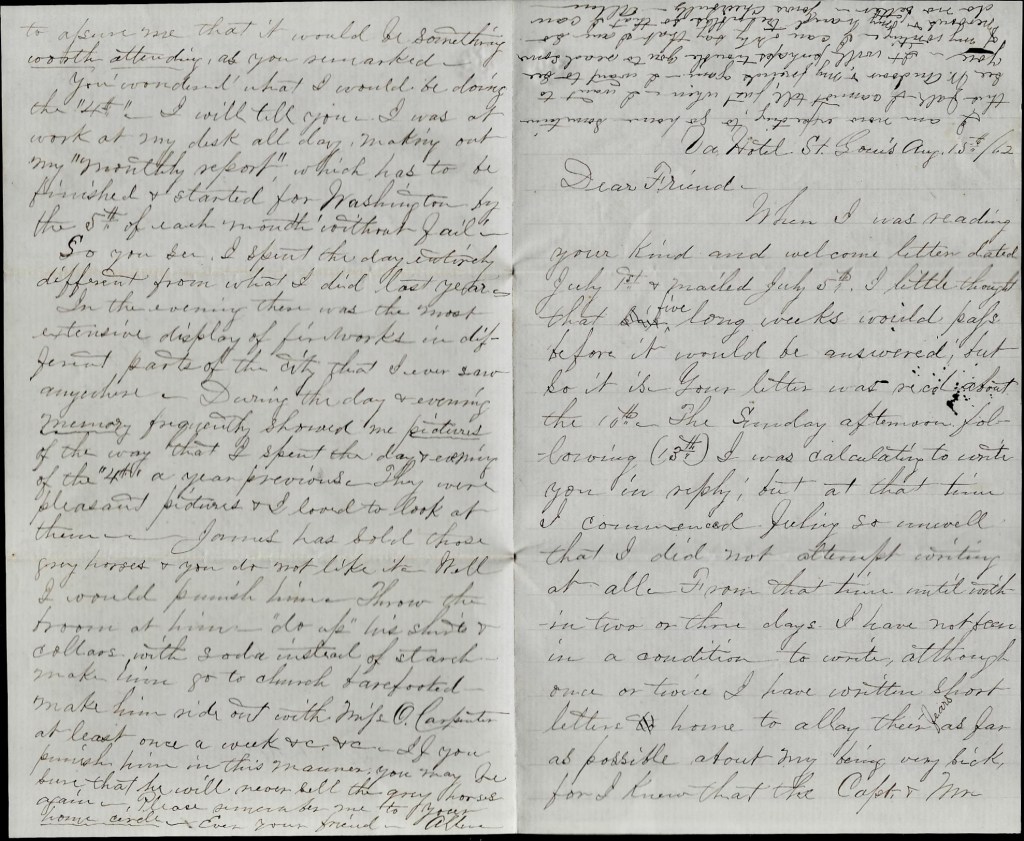 to assure me that it would be something
worth attending, as you remarked –
You wondered what I would be doing
the "4th" – I will tell you – I was at
work at my desk all day, making out
my "monthly report", which has to be
finished & started for Washington by
the 5th of each month without fail –
So you see, I spent the day entirely
different from what I did last year –
In the evening there was the most
extensive display of fireworks in dif-
ferent parts of the city that I ever saw
anywhere – During the day & evening
Memory frequently showed me pictures
of the way that I spent the day & evening
of the "4th" a year previous – They were
pleasant pictures & I loved to look at
them – James has sold those
grey horses & you do not like it – Well
I would punish him – Throw the
broom at him – "do up" his shirts &
collars with soda instead of starch –
make him go to church barefooted –
make him ride out with Miss O. Carpenter
at least once a week &c, &c – If you
punish him in this manner, you may be
sure that he will never sell the grey horses
again – Please remember me to your
home circle – Ever your friend – Allen
Va. Hotel St. Louis Aug. 15th/62
Dear Friend –
When I was reading
your kind and welcome letter dated
July 1st & mailed July 5th, I little thought
that five long weeks would pass
before it would be answered, but
so it is – Your letter was rec'd about
the 10th – The Sunday afternoon fol-
-lowing (13th) I was calculating to write
you in reply, but at that time
I commenced feeling so unwell
that I did not attempt writing
at all – From that time until with-
-in two or three days I have not been
in a condition to write, although
once or twice I have written short
letters home to allay their fears as far
as possible about my being very sick,
for I knew that the Capt. & Mr
I am now expecting to go home sometime
this fall – I cannot tell just when – I want to
see & my friends again – I want to see
you – It will perhaps trouble you to read some
of my writing – I can only say that I am so
nervous & my hand trembles so that I can
do no better – Yours Cheerfully – Allen